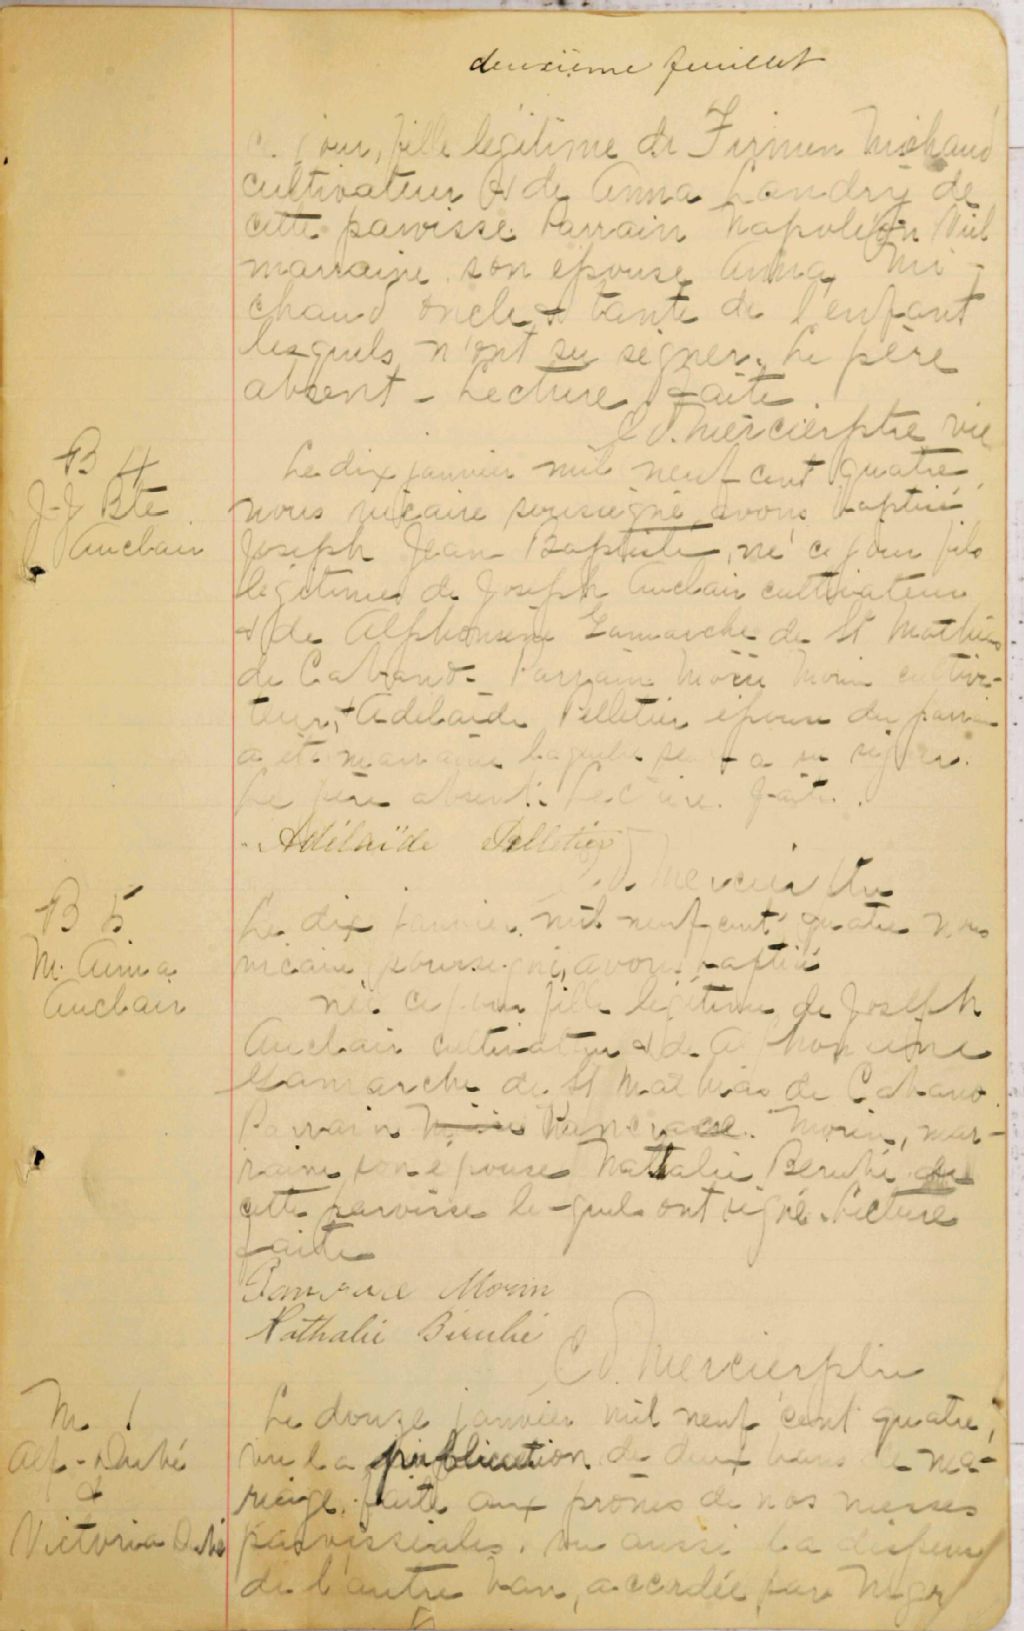 deuxième feuillet
ce jour, fille légitime de Firmen Michaud
cultivateur & de Anna Landry de
cette paroisse. Parrain Napoléon Viel
marraine son épouse Anna Mi-
chaud oncle & tante de l'enfant
lesquels n'ont su signer. Le père
absent - Lecture faite
Ed. Mercier ptre vic
B 4
J-J Bte
Auclair
Le dix janvier mil neuf cent quatre
nous vicaire soussigné avons baptisé
Joseph Jean Baptiste, né ce jour fils
légitime de Joseph Auclair cultivateur
& de Alphonsine Lamarche de St Mathias
de Cabano. Parrain Morin cultiva-
teur, & Adélaïde Pelletier épouse du parrain
a été marraine laquelle seule a su signer.
Le père absent. Lecture faite.
Adélaïde Pelletier
Ed. Mercier
B 5
M. Aima
Auclair
Le dix janvier mil neuf cent quatre nous
vicaire soussigné, avons baptisé
née ce jour fille légitime de Joseph
Auclair cultivateur & de Alphonsine
Lamarche de St Mathias de Cabano.
Parrain Pancrace Morin, mar-
raine son épouse Nathalie Bérubé de
cette paroisse lesquels ont signé. Lecture
faite
Pancrace Morin
Nathalie Bérubé
Ed. Mercier ptre
M. 1
Alf - Dubé
&
Victoria Dubé
Le douze janvier mil neuf cent quatre,
vu la publication de deux bans de ma-
riage faite aux prônes de nos messes
paroissiales, vu aussi la dispense
de l'autre ban, accordée par Mgr